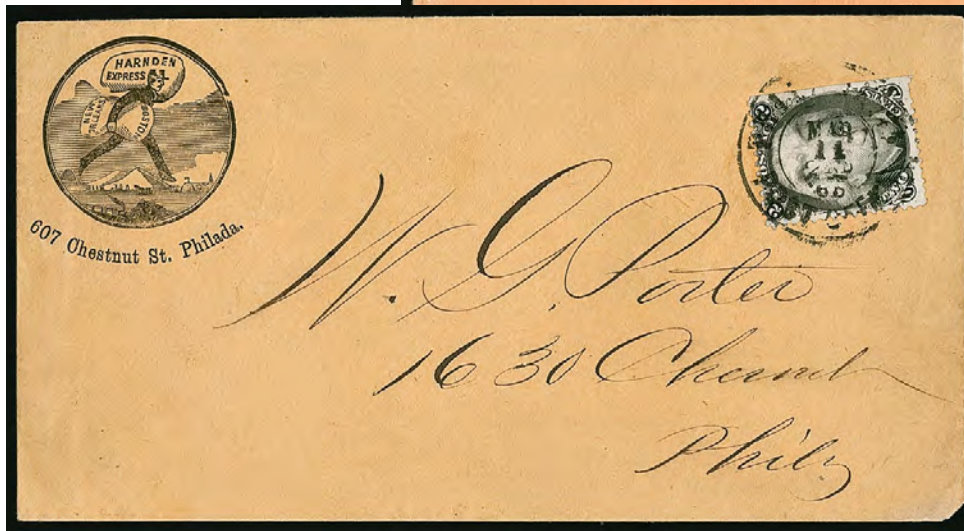 HARNDEN
EXPRESS
NEW
ORLEANS
BOSTON
607 Chestnut St. Philada.
MAR
11
W. G. Porter
1630 Chesnut
Phila